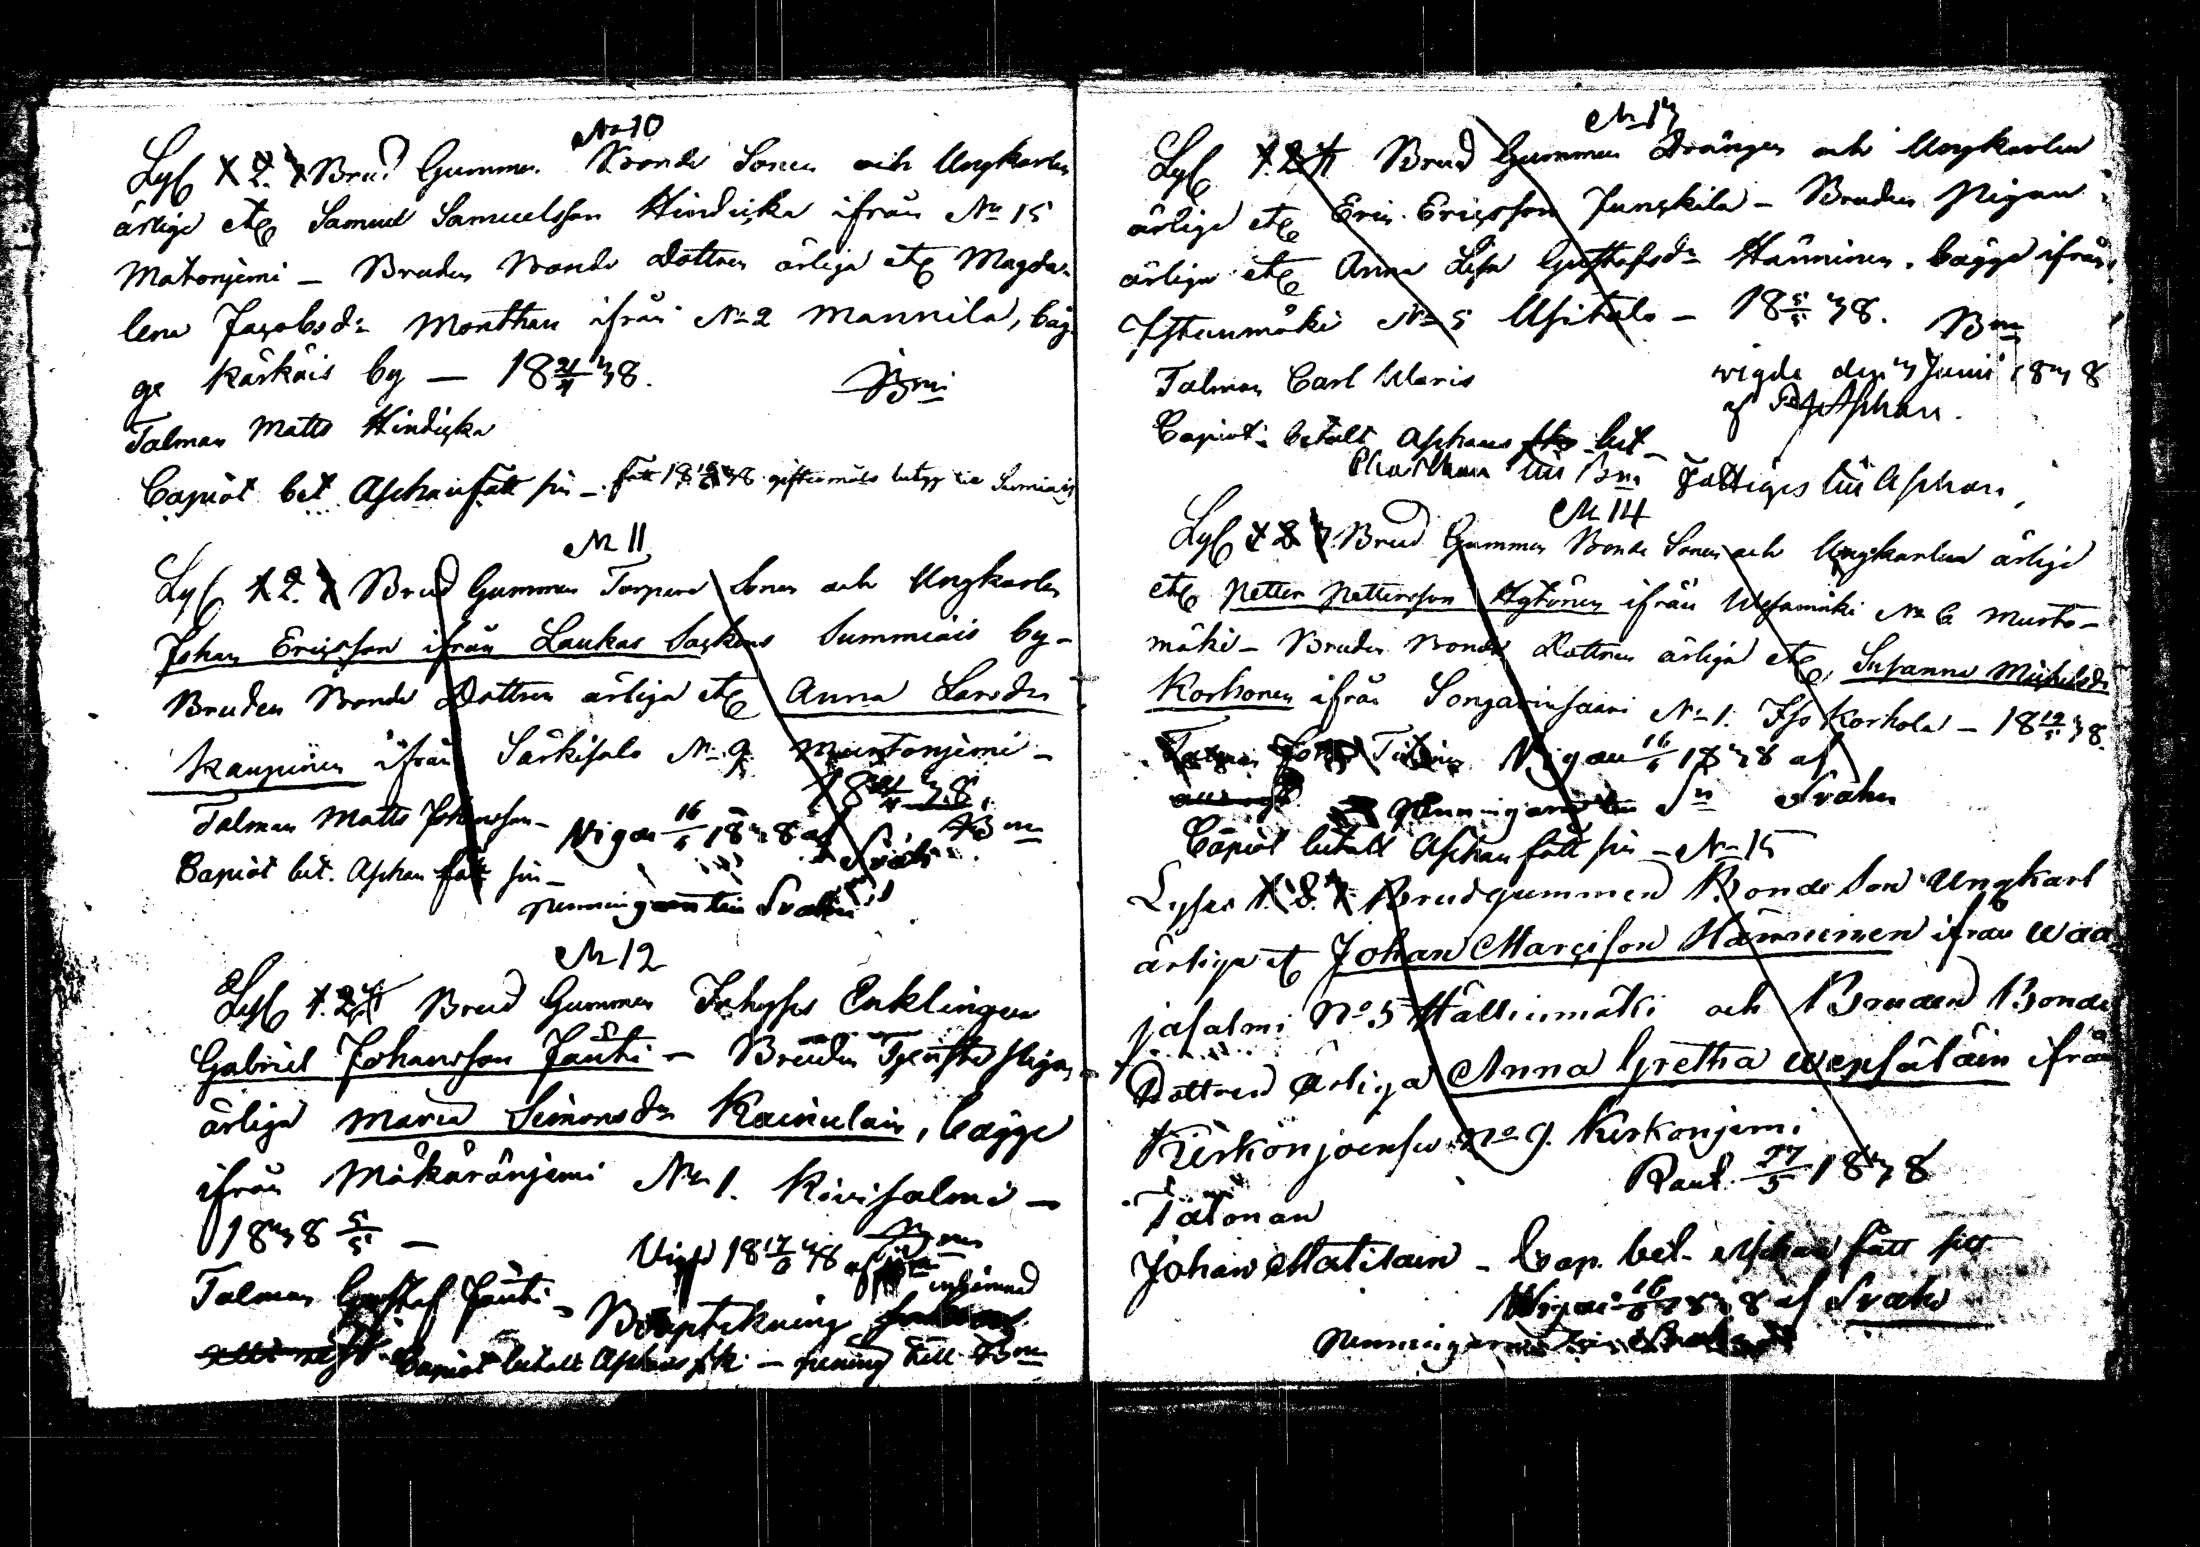 No 10
Lys 1. 2. 3 Brud Gummen Bonde Sonen och Ungkarlen
ärlige etc Samuel Samuelsson Hindicka ifrån No 15
Matonjemi — Bruden Bonde Dottren ärliga etc Magda-
lena Jacobsdr Monthan ifrån No 2 Mannila, bäg-
ge Kärkäis by — 18 21/4 38.
Bm
Talman Matts Hindicka
Capiöt bet Aschan fått sin —
No 11
Lys 1. 2. 3 Brud Gummen Torpare Sonen och Ungkarlen
Johan Ericsson ifrån Laukas Sockens Summiais by —
Bruden Bonde Dottren ärliga etc Anna Larsdr
Kaupinen ifrån Särkisalo No 9 Muntonjemi —
18 21/4 38.
Talman Matts Johansson — Vigde 16/6 1838 af Svahn
Bm
Capiöt bet. Aschan fått sin —
penningarne till Svahn
No 12
Lys 1. 2. 3 Brud Gummen Inhyses Enklingen
Gabriel Johansson Jäuti — Bruden Tjenste Pigan
ärliga Maria Simonsdr Kainulain, bägge
ifrån Mäkäränjemi No 1. Kivisalmi —
1838 5/5 —
Vigd 18 17/6 38 af
Talman Gustaf Jäuti —
Capiöt betalt Aschan — pening till Bm
No 13
Lys 1. 2. 3 Brud Gummen Drängen och Ungkarlen
ärlige etc Eric Ericsson Junckila — Bruden Pigan
ärliga etc Anna Lisa Gustafsdr Hänninen, bägge ifrån
Istunmäki No 5 Usitalo — 18 5/5 38. Bm
Talman Carl Waris
vigde den 3 Junii 1838
af Aschan.
Capiöt betalt Aschans
till Bm Fattiges till Aschan
No 14
Lys 1. 2. 3. Brud Gummen Bonde Sonen och Ungkarlen ärlige
etc Petter Pettersson Hytönen ifrån Wesamäki No 6 Murto-
mäki — Bruden Bonde Dottren ärliga etc, Susanna Michelsdr
Korhonen ifrån Songarinsaari No 1. Iso Korhola — 18 12/5 38.
Vigde 16/6 1838 af
Svahn
Capiöt betalt Aschan fått sin — No 15
Lyses 1. 2. 3 Brudgummen Bonde Son Ungkarl
ärlige etc Johan Marcisson Hänninen ifrån Waa-
jasalmi No 5 Hällinmäki och Bruden Bonde
Dottren Ärliga Anna Gretha Wepsäläin ifrån
Kierkönjoensu No 9. Kerkonjemi
Raut. 27/5 1838
Talonan
Johan Matilain — Cap. bet. Aschan fått sitt
Vigde 16/6 1838 af Svahn
Penningarne